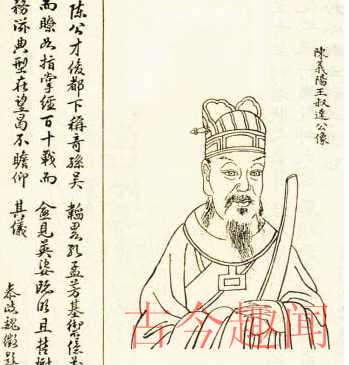 陳義陽王叔達公像
陳公才俊都下稱奇孫吳韜畧孔孟芳基御億萬
而瞭如指掌經百十戰而僉見英姿既明且哲
務 典型在望曷不瞻仰其儀
魏徵題
古今趣闻